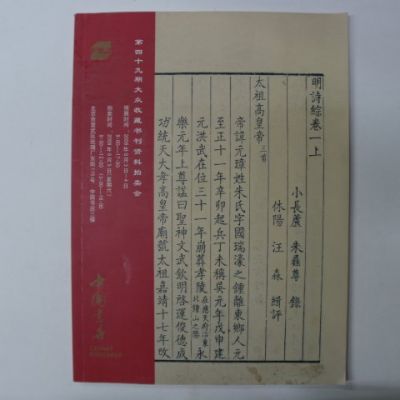 明詩綜卷一上
小長蘆 朱彝尊 錄
休陽 汪森 緝評
太祖高皇帝三首
帝諱元璋姓朱氏字國瑞濠之鍾離東鄉人元
至正十一年辛卯起兵丁未稱吳元年戊申建
元洪武在位三十一年崩葬孝陵在應天府治東北鍾山之陽永
樂元年上尊諡曰聖神文武欽明啓運俊德成
功統天大孝高皇帝廟號太祖嘉靖十七年改
第四十九期大众收藏书刊资料拍卖会
中國書店